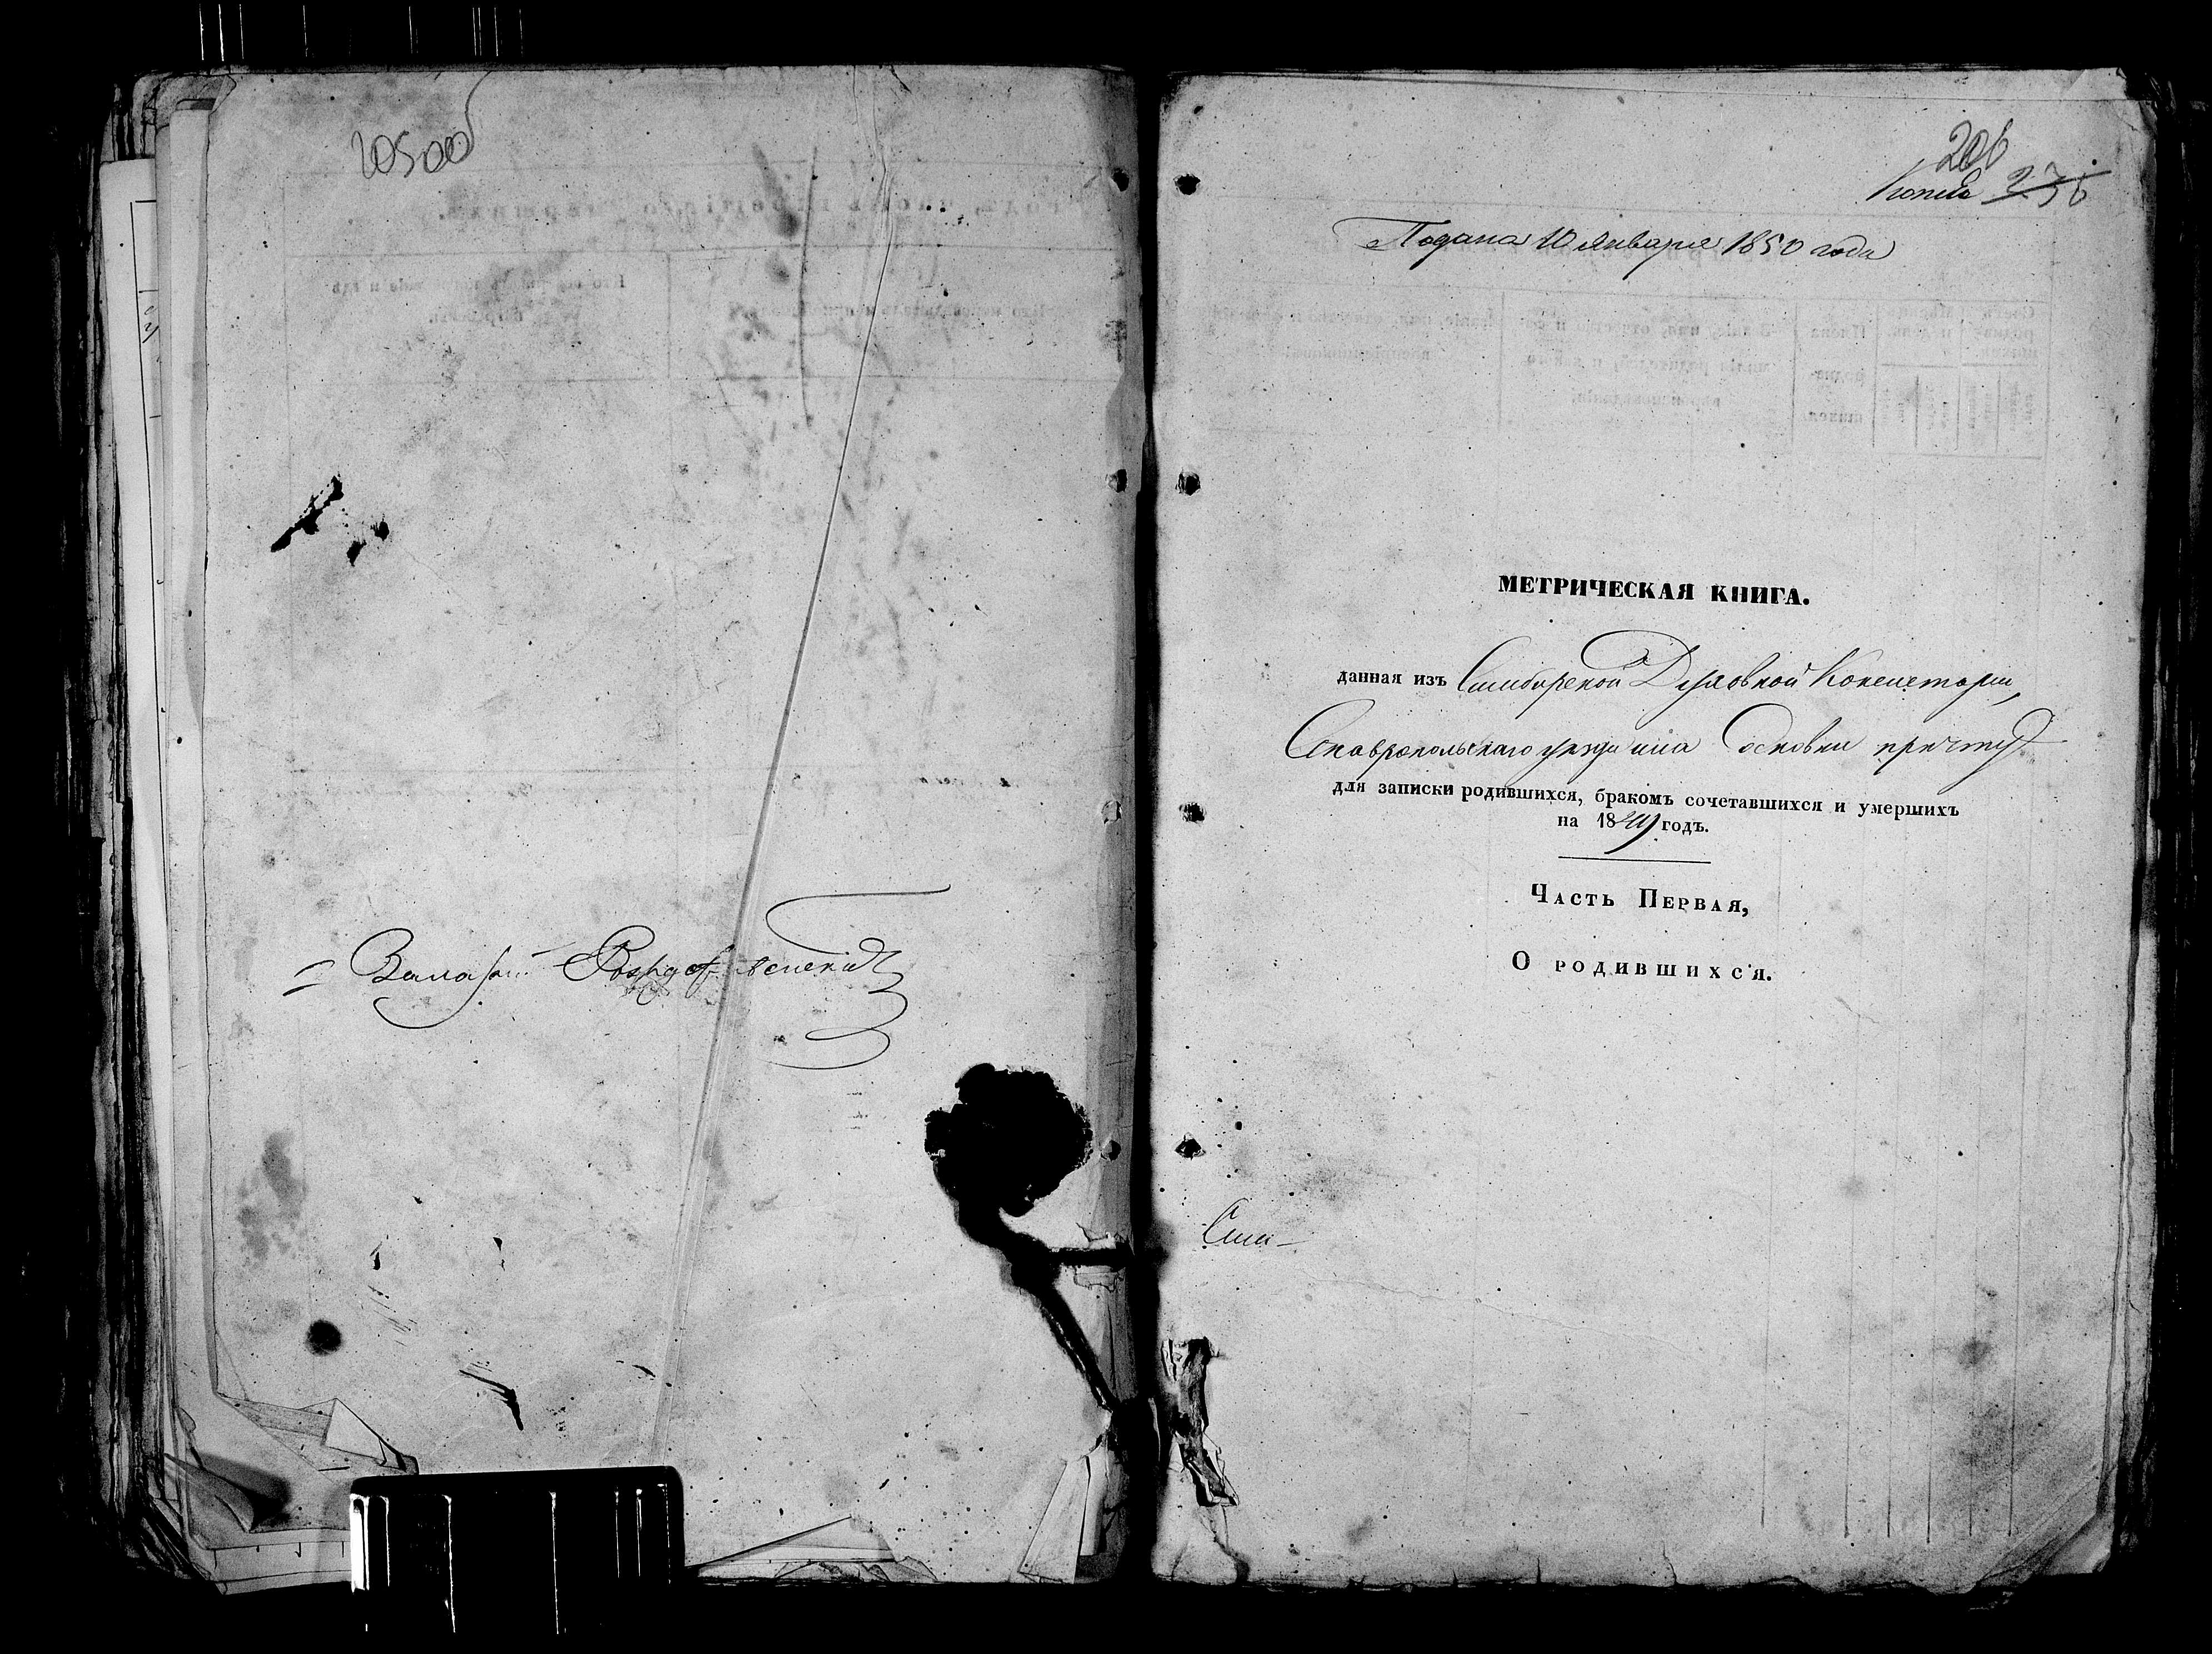 205об
Валерій Рождественскій
206
Копия 236
Подана 10 Января 1850 года
МЕТРИЧЕСКАЯ КНИГА.
данная изъ Симбирской Духовной Консисторіи,
Ставропольскаго уѣзда села Сосновки причту
для записки родившихся, бракомъ сочетавшихся и умершихъ
на 1849 годъ.
Часть Первая,
О родившихся.
Сим-